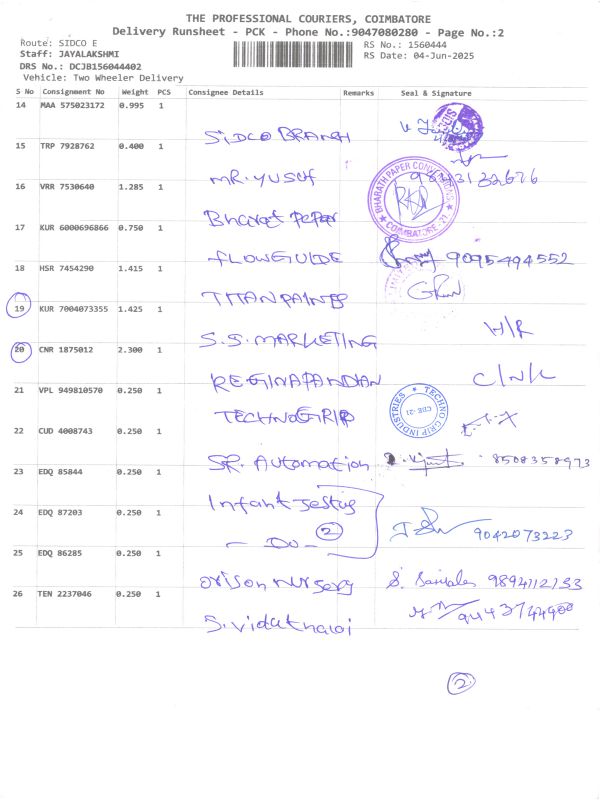 THE PROFESSIONAL COURIERS, COIMBATORE
Delivery Runsheet - PCK - Phone No.:9047080280 - Page No.:2
Route: SIDCO E
Staff: JAYALAKSHMI
DRS No.: DCJB156044402
Vehicle: Two Wheeler Delivery
RS No.: 1560444
RS Date: 04-Jun-2025
S No Consignment No Weight PCS Consignee Details Remarks Seal & Signature
14 MAA 575023172 0.995 1 SIDCO BRANCH
15 TRP 7928762 0.400 1 MR. YUSUF
16 VRR 7530640 1.285 1 Bharat Peper BHARATH PAPER CONVERSIONS COIMBATORE - 21
17 KUR 6000696866 0.750 1 FLOWGUIDE 9095494552
18 HSR 7454290 1.415 1 TITAN PAINTS
19 KUR 7004073355 1.425 1 S.S. MARKETING H/R
20 CNR 1875012 2.300 1 REGINAPANDIAN C/N/L
21 VPL 949810570 0.250 1 TECHNOGRIP TECHNO GRIP INDUSTRIES CBE-21
22 CUD 4008743 0.250 1 SR. Automation 8508358973
23 EDQ 85844 0.250 1 Infant Jestus
24 EDQ 87203 0.250 1 - Do - 2 9042073223
25 EDQ 86285 0.250 1 Orison nursery 9894112133
26 TEN 2237046 0.250 1 S. vidathaloi 9443744900
2